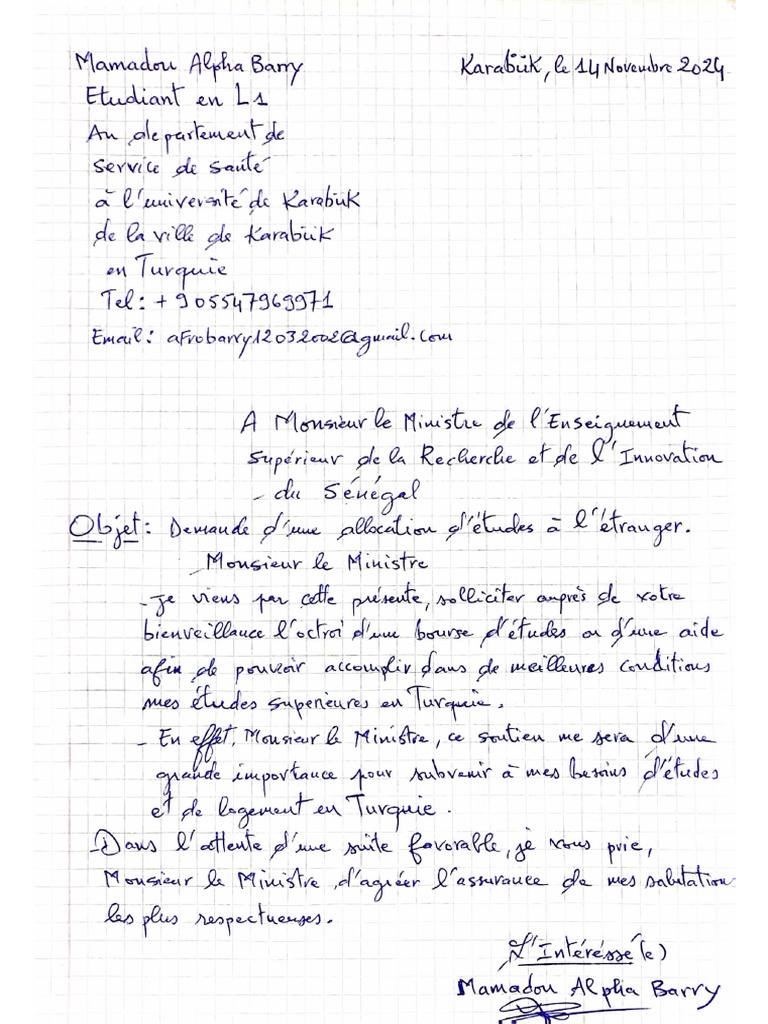 Mamadou Alpha Barry
Karabük, le 14 Novembre 2024
Etudiant en L1
Au departement de
service de santé
à l'université de Karabük
de la ville de Karabük
en Turquie
Tel: +905547969971
Email: afrobarry12032002@gmail.com
A Monsieur le Ministre de l'Enseignement
Supérieur de la Recherche et de l'Innovation
du Sénégal
Objet: Demande d'une allocation d'études à l'étranger.
Monsieur le Ministre
- Je viens par cette présente, solliciter auprès de votre
bienveillance l'octroi d'une bourse d'études ou d'une aide
afin de pouvoir accomplir dans de meilleures conditions
mes études superieures en Turquie.
- En effet, Monsieur le Ministre, ce soutien me sera d'une
grande importance pour subvenir à mes besoins d'études
et de logement en Turquie.
Dans l'attente d'une suite favorable, je vous prie,
Monsieur le Ministre, d'agréer l'assurance de mes salutation
les plus respectueuses.
L'Intéréssé(e)
Mamadou Alpha Barry